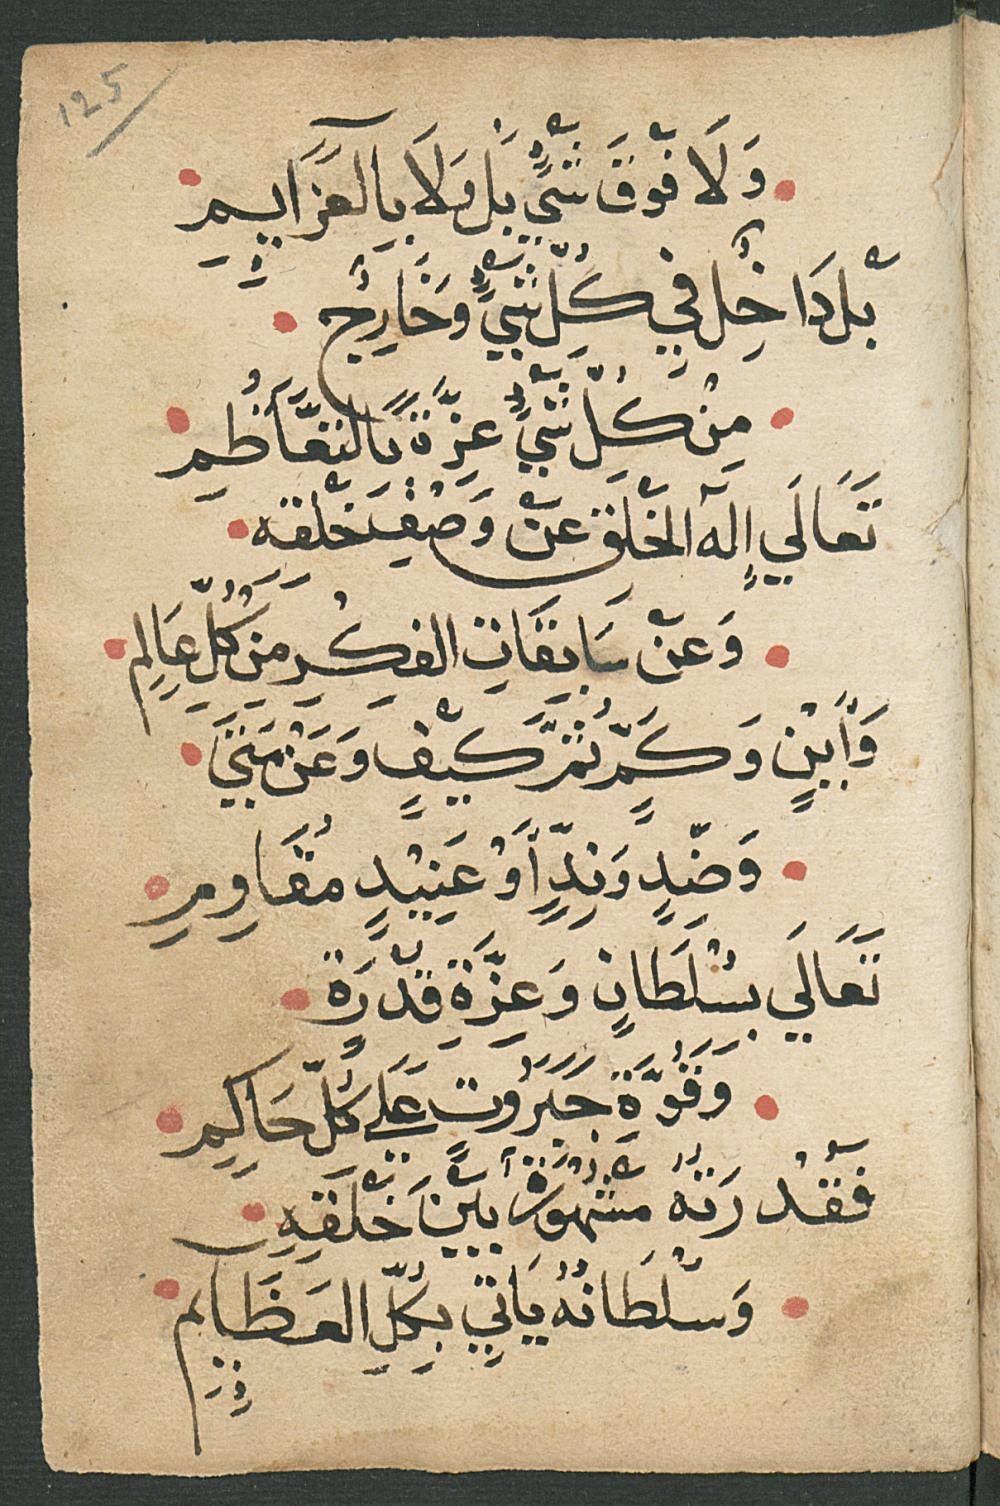 125
وَلَا فَوْقَ شَيْءٍ بَل وَلَا بِالعَزَايِمِ
بَلْ دَاخِل فِي كُلِّ شَيْءٍ وَخَارِجٌ
مِنْ كُلِّ شَيْءٍ عِزَّةً بِالتَّعَاظُمِ
تَعَالَي إِلَهُ الخَلْقِ عَنْ وَصْفِ خَلْقِهِ
وَعَنْ سَابِقَاتِ الفِكْرِ مِنْ كُلِّ عَالِمِ
وَأَيْنٍ وَكَمٍّ ثُمَّ كَيْفٍ وَعَنْ مَتَي
وَضِدٍّ وَنِدٍّ أَوْ عَنِيْدٍ مُقَاوِمِ
تَعَالَي بِسُلْطَانٍ وَعِزَّةِ قُدْرَةٍ
وَقُوَّةِ جَبَرُوتٍ عَلَي كُلِّ حَاكِمِ
فَقُدْرَتُهُ مَشْهُورَةٌ بَيْنَ خَلْقِهِ
وَسُلْطَانُهُ يَأْتِي بِكُلِّ العَظَايِمِ